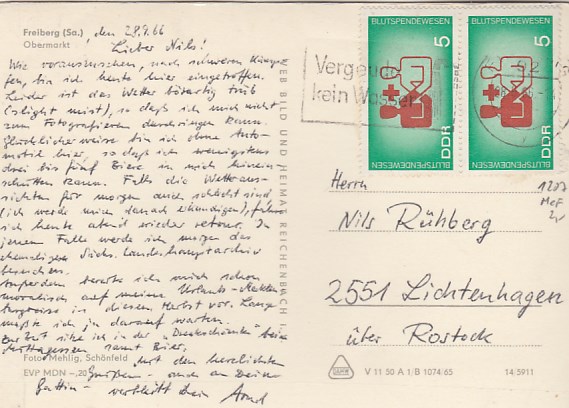 Freiberg (Sa.)
Obermarkt
, den 28.9.66
Lieber Nils!
Wie vorauszusehen, nach schweren Kämp-
fen, bin ich heute hier eingetroffen.
Leider ist das Wetter bösartig trüb
(slight mist), so daß ich mich nicht
zum Fotografieren durchringen kann.
Glücklicherweise bin ich ohne Auto-
mobil hier, so daß ich wenigstens
drei bis fünf Biere in mich hinein-
schütten kann. Falls die Wetteraus-
sichten für morgen auch schlecht sind
(ich werde mich danach erkundigen), fahre
ich heute abend wieder retour. In
jenem Falle werde ich morgen das
ehemalige Sächs. Landeshauptarchiv
besuchen.
Außerdem bereite ich mich schon
moralisch auf meine Urlaubs-
in diesem Herbst vor. Lange
mußte ich ja darauf warten.
Zur Zeit sitze ich in der beim
Mittagessen samt Bier.
Mit den herzlichsten
Grüßen - auch an Deine
Gattin - verbleibt Dein
Foto Mehlig, Schönfeld
EVP MDN -,20
WEB BILD UND HEIMAT REICHENBACH I. V.
Vergeude
kein Wasser
BLUTSPENDEWESEN
5
DDR
BLUTSPENDEWESEN
BLUTSPENDEWESEN
5
DDR
BLUTSPENDEWESEN
Herrn
Nils Rühberg
2551 Lichtenhagen
über Rostock
V 11 50 A 1/B 1074/65
14 5911